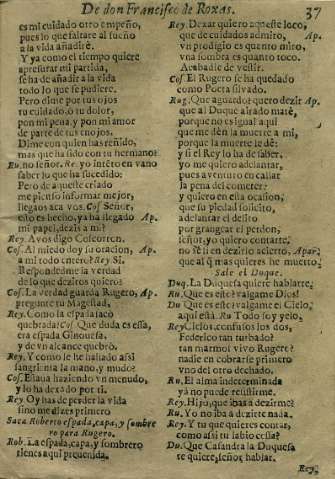 De don Francisco de Roxas. 37
es mi cuidado otro empeño,
pues lo que faltare al sueño
a la vida añadirè.
Y ya como el tiempo quiere
apresurar mi partida,
se ha de añadir a la vida
todo lo que se pudiere.
Pero dime por tus ojos
tu cuidado, ò tu dolor,
por mi pena, y por mi amor
de parte de tus enojos.
Dime con quien has reñido,
mas que ha sido con tu hermano?
Ru. no señor. Re. yo intento en vano
saber lo que ha sucedido:
Pero de aqueste criado
me pienso informar mejor,
llegaos acà vos. Cos. Señor,
esto es hecho, ya ha llegado Ap.
mi papel, dezis a mi?
Rey. A vos digo Coscorron.
Cos. Al miedo doy su oracion, Ap.
a mi todo entero? Rey. Si.
Respondedme la verdad
de lo que deziros quiero:
Cos. La verdad guarda Rugero, Ap.
pregunte tu Magestad,
Rey. Como la espada sacò
quebrada? Cos. Que duda es essa,
era espada Ginouesa,
y de vn alcance quebrò.
Rey. Y como le he hallado assi
sangrienta la mano, y mudo?
Cos. Estaua haziendo vn menudo,
y lo ha dexado por ti.
Rey. Oy has de perder la vida
sino me dizes primero
Saca Roberto espada, capa, y sombre
ro para Rugero.
Rob. La espada, capa, y sombrero
tienes aqui preuenida.
Rey. Dexar quiero aqueste loco,
que de cuidados admiro, Ap.
vn prodigio es quanto miro,
vna sombra es quanto toco.
Acabadle de vestir.
Cos. El Rugero se ha quedado
como Poeta silvado.
Rug. Que aguardo? quero dezir Ap.
que al Duque airado matè,
porque no es igual aqui
que me dèn la muerte a mi,
porque la muerte le dè:
y si el Rey lo ha de saber,
yo me quiero adelantar,
pues aventuro en callar
la pena del cometer?
y quiero en esta ocasion,
que su piedad solicito,
adelantar el delito
por grangear el perdon,
señor, yo quiero contarte,
no sè si en dezirlo acierto, Apar.
que al q̃ mas quieres he muerto.
Sale el Duque.
Duq. La Duquesa quiere hablarte:
Ru. Que es este? valgame Dios!
Du Que es este? valgame el Cielo,
aqui està. Ru Todo soy yelo,
Rey Cielos, confusos los dos,
Federico tan turbado?
tan marmol vivo Rugero?
nadie en cobrarse primero
vno del otro dechado.
Ru. El alma indeterminada
ya no puede resistirme.
Rey. Hijo, què ibas a dezirme?
Ru. Yo no iba a dezirte nada.
Rey. Y tu que quieres contar,
como assi tu labio sella?
Du. Que Casandra la Duquesa
te quiere, señor, hablar.
Rey.